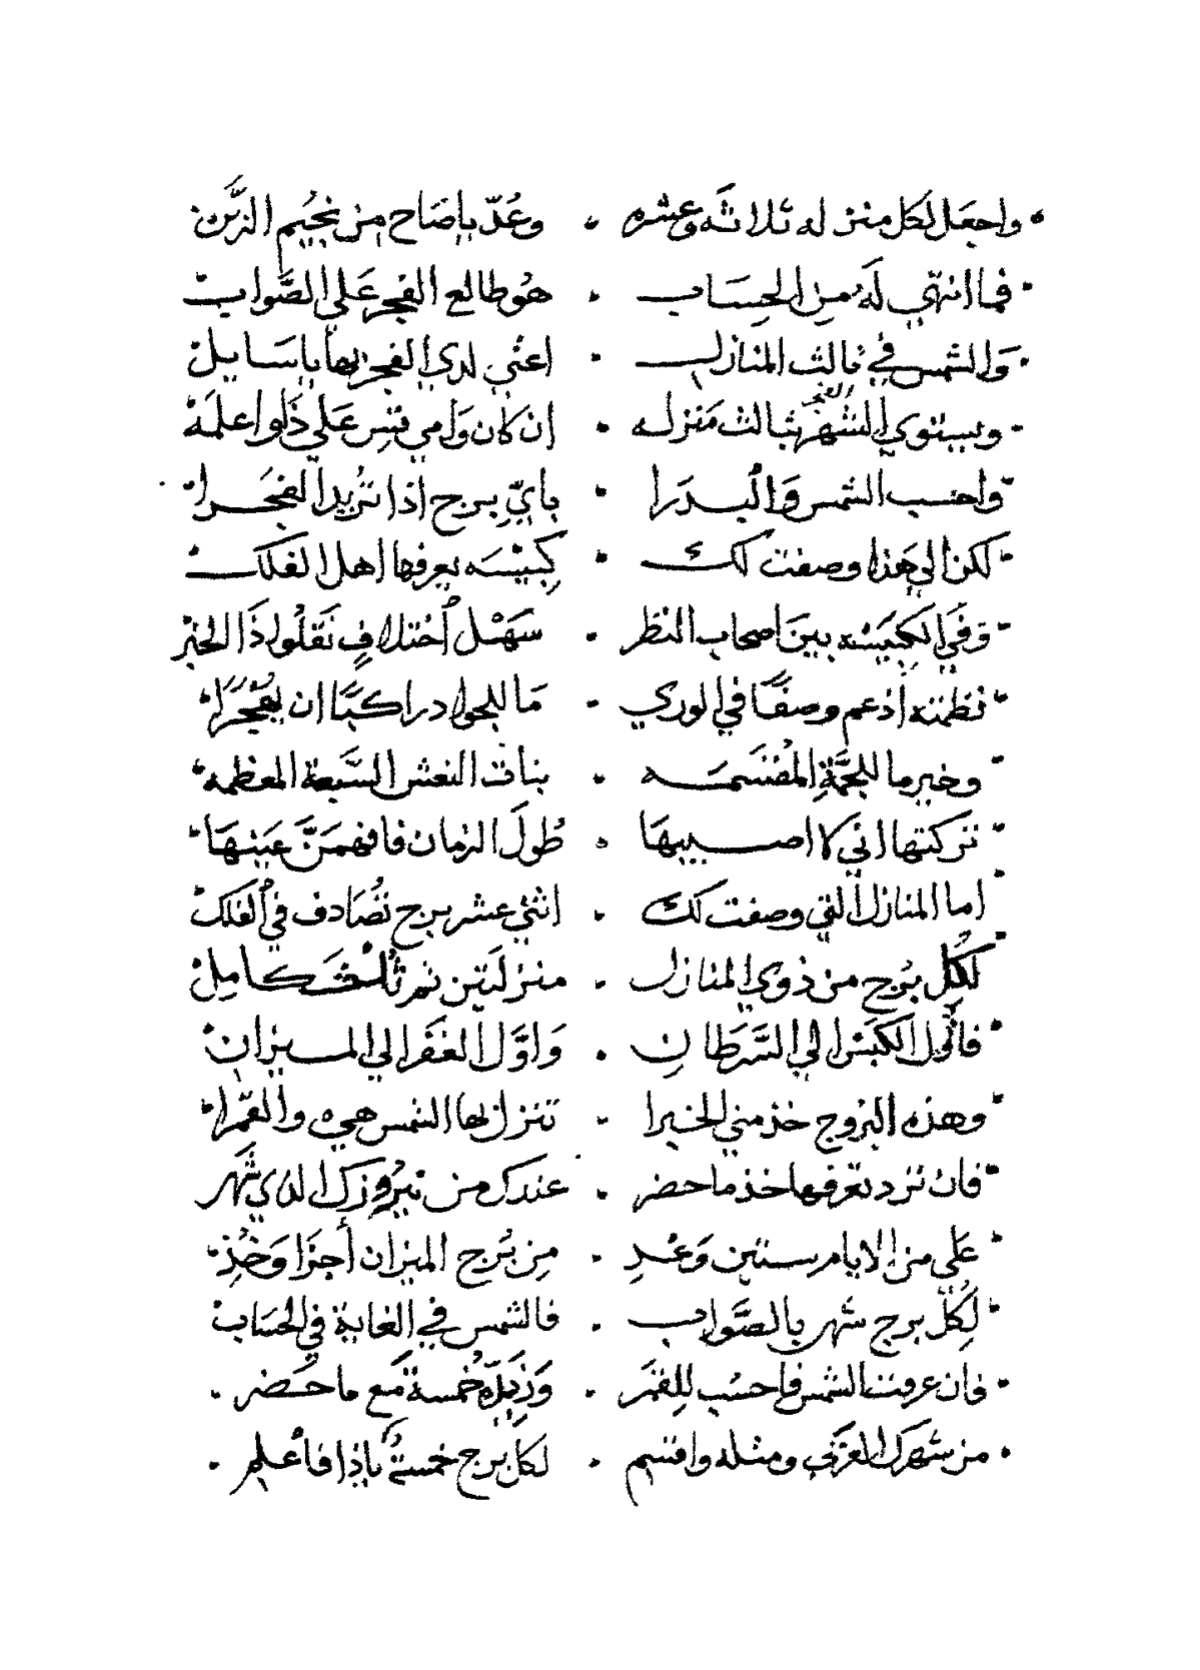 واجعل لكل منزله ثلاثه وعشره • وعُدّ ياصَاح من نجيُم الزَّبن
فما انتهي لَهُ من الحِسَاب • هوُ طالع الفجر عَلي الصَّواب
وَالشمس في ثالث المنازل • اعني لدي الفجر بها ياسَايل
ويستوي الشهر الفجر بثالث مَنزله • ان كان وَامي قتبِس عَلي ذَلو اعلمَهْ
واحسب الشمس وَالبدرَا • بايّ برج اذا تُريد الفجَرا
لكن الي هَذا وصفت لك • كبِيْسَه يعرفها اهل الفلك
وَفي الكبِيْسَه بينَ اصحاب النظر • سَهَل اخْتلافٍ نَقَلُوا ذَا الخبر
نظمته اذ عم وصفًا في الوري • مَا للجوا در اكبًا ان يفجرَا
وخير ما للجمَّةِ المُقتسَمَه • بنات النعش السَّبعة المعظمه
تركتها اني لا اصيبهَا • طُولَ الزمان فافهمَنَّ عَيْنهَا
اما المنازل التي وصفت لك • اثني عشر برج تصُادف في الفَلك
لكُل بُرج من ذوي المنازل • منزلَتين ثم ثُلث كامِل
فاُول الكَبَش الي السَّرَطان • وَاوَّل الغَفَر الي الميزان
وهذه البُروج خذ مني الخبرا • تنزل بها الشمس هي والقمَرا
فان ترد تعرفها خذ ما حضر • عندك من نيرُوزك الذي شَهر
عَلي من الايام ستين وَعُدِ • مِن بَرج الميزان أجزَا وَخُذِ
لِكُل برج شهر بالصَّواب • فالشمس في الغاية في الحسَاب
فان عرفت الشمس فاحسُب للقمَر • وَزِيدّه خُمسة مَع ما حَضر
من شهرك العَرَبي ومثله واقسم • لكل برج خمسةُ ياذا فأعلم